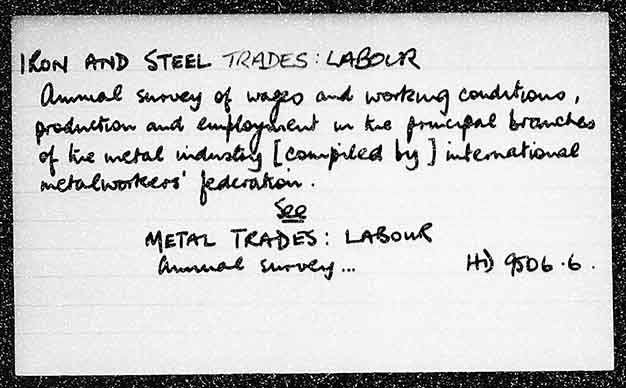 IRON AND STEEL TRADES: LABOUR
Annual survey of wages and working conditions,
production and employment in the principal branches
of the metal industry [compiled by] international
metalworkers' federation.
See
METAL TRADES: LABOUR
Annual survey... HD 9506.6.